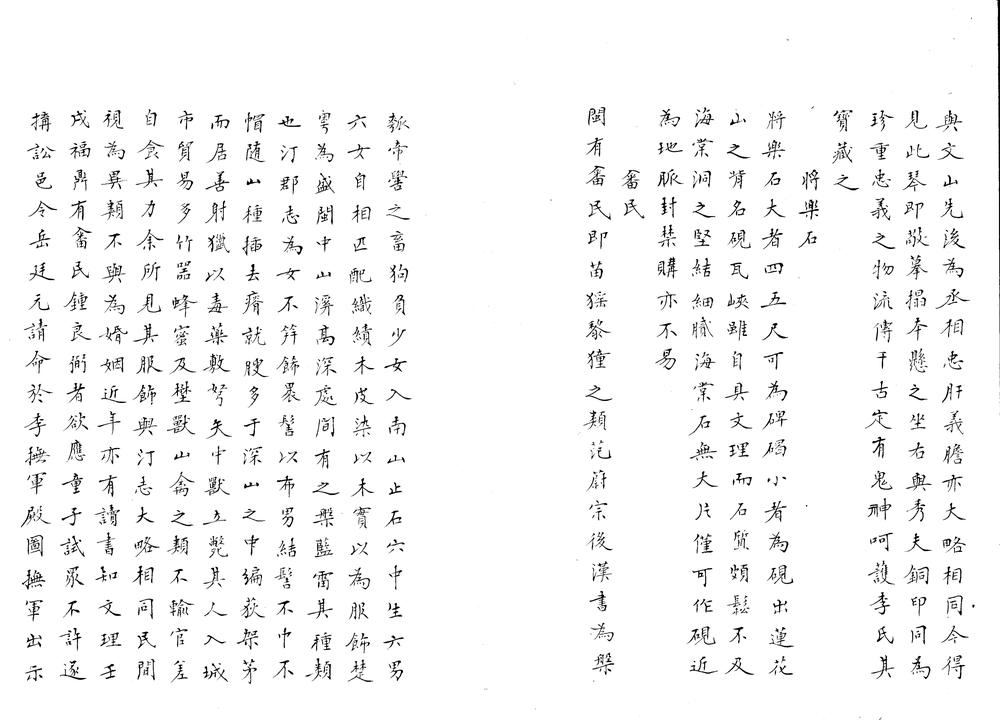 與文山先後為丞相忠肝義膽亦大略相同今得
見此琴即敲摹搨本懸之坐右與秀夫銅印同為
珍重忠義之物流傳千古定有鬼神呵護李氏其
寶藏之
將樂石
將樂石大者四五尺可為碑碣小者為硯出蓮花
山之背名硯瓦峽雖自具文理而石質頗鬆不及
海棠洞之堅結細膩海棠石無大片僅可作硯近
為地脈封禁購亦不易
畬民
閩有畬民即苗猺黎獞之類范蔚宗後漢書為槃
瓠帝嚳之畜狗負少女入南山止石穴中生六男
六女自相匹配織績木皮染以木實以為服飾楚
粵為盛閩中山溪高深處間有之槃藍雷其種類
也汀郡志為女不笄飾裹髻以布男結髻不巾不
帽随山種插去瘠就腴多于深山之中編荻架茅
而居善射獵以毒藥敷弩矢中獸立斃其人入城
市貿易多竹器蜂蜜及樊獸山禽之類不輸官差
自食其力余所見其服飾與汀志大略相同民間
視為異類不與為婚姻近年亦有讀書知文理壬
戌福鼎有畬民鍾良弼者欲應童子試眾不許逐
搆訟邑令岳廷元請命於李撫軍殿圖撫軍出示